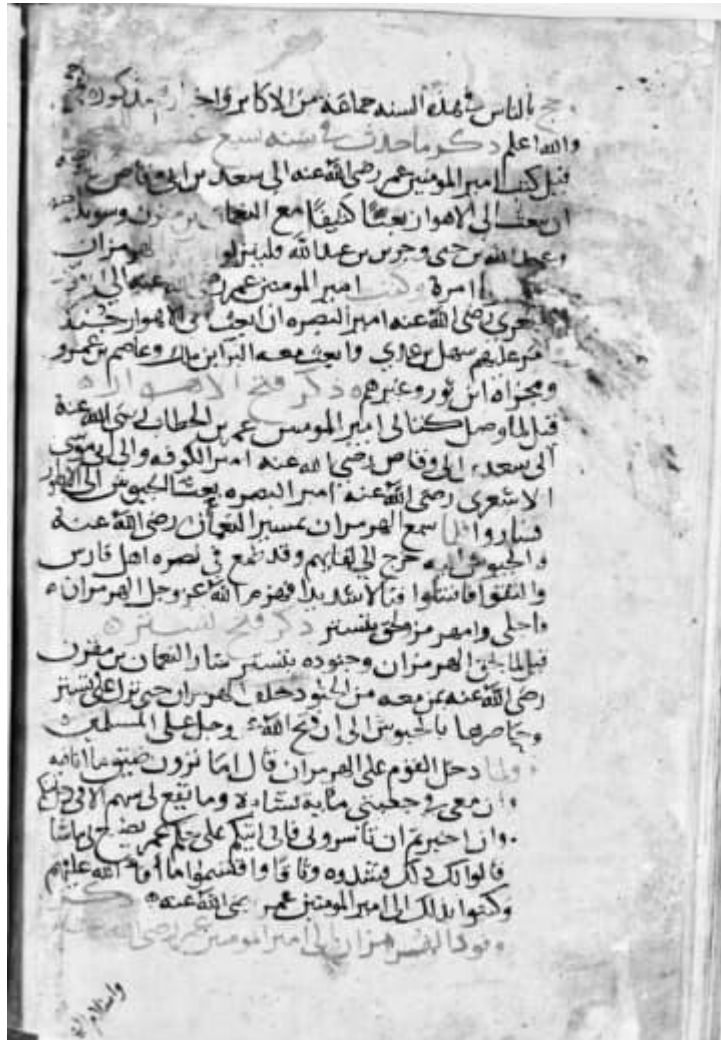 حج بالناس في هذه السنه جماعة من الاكابر واخبارهم مذكوره
والله اعلم ذكر ما حدث في سنه سبع عشره
قيل كتب امير المومنين عمر رضى الله عنه الى سعد بن ابى وقاص
ان يبعث الى الاهواز بعثا كثيفا مع النعمان بن مقرن وسويد
وعبد الله بن وجرير بن عبد الله ولينزلوا الهرمزان
امره وكتب امير المومنين عمر رضى الله عنه الى ابى موسى
الاشعرى رضى الله عنه امير البصره ان ابعث الى الاهواز جند
وامر عليهم سهل بن عدي وابعث معه البرا بن مالك وعاصم بن عمرو
ومجزاه ابن ثور وغيرهم ذكر فتح الاهواز
قيل لما وصل كتاب امير المومنين عمر بن الخطاب رضى الله عنه
الى سعد بن ابى وقاص رضى الله عنه امير الكوفه والى ابى موسى
الاشعرى رضى الله عنه امير البصره بعث الجيوش الى الاهواز
فساروا فلما سمع الهرمزان بمسير النعمان رضى الله عنه
والجيوش اليه خرج الى لقايهم وقد طمع في نصره اهل فارس
والتقوا فاقتتلوا قتالا شديدا فهزم الله عز وجل الهرمزان
واخلى رامهرمز ولحق بتستر ذكر فتح تستر
قيل لما لحق الهرمزان وجنوده بتستر سار النعمان بن مقرن
رضى الله عنه بمن معه من الجنود خلف الهرمزان حتى نزل على تستر
وحاصرها بالجيوش الى ان فتح الله عز وجل على المسلمين
ولما دخل القوم على الهرمزان قال اما ترون ضيق ما انا فيه
وان معى في جعبتى مايه نشابه وما يقع لى سهم الا في رجل منكم
وان اخبرتم ان تاسرونى فانى اتيكم على حكم عمر يصنع بى ما شا
قالوا لك ذلك وشدوه وثاقا واقتسموا ما افا الله عليهم
وكتبوا بذلك الى امير المومنين عمر رضى الله عنه ذكر
وفود الهرمزان الى امير المومنين عمر رضى الله عنه